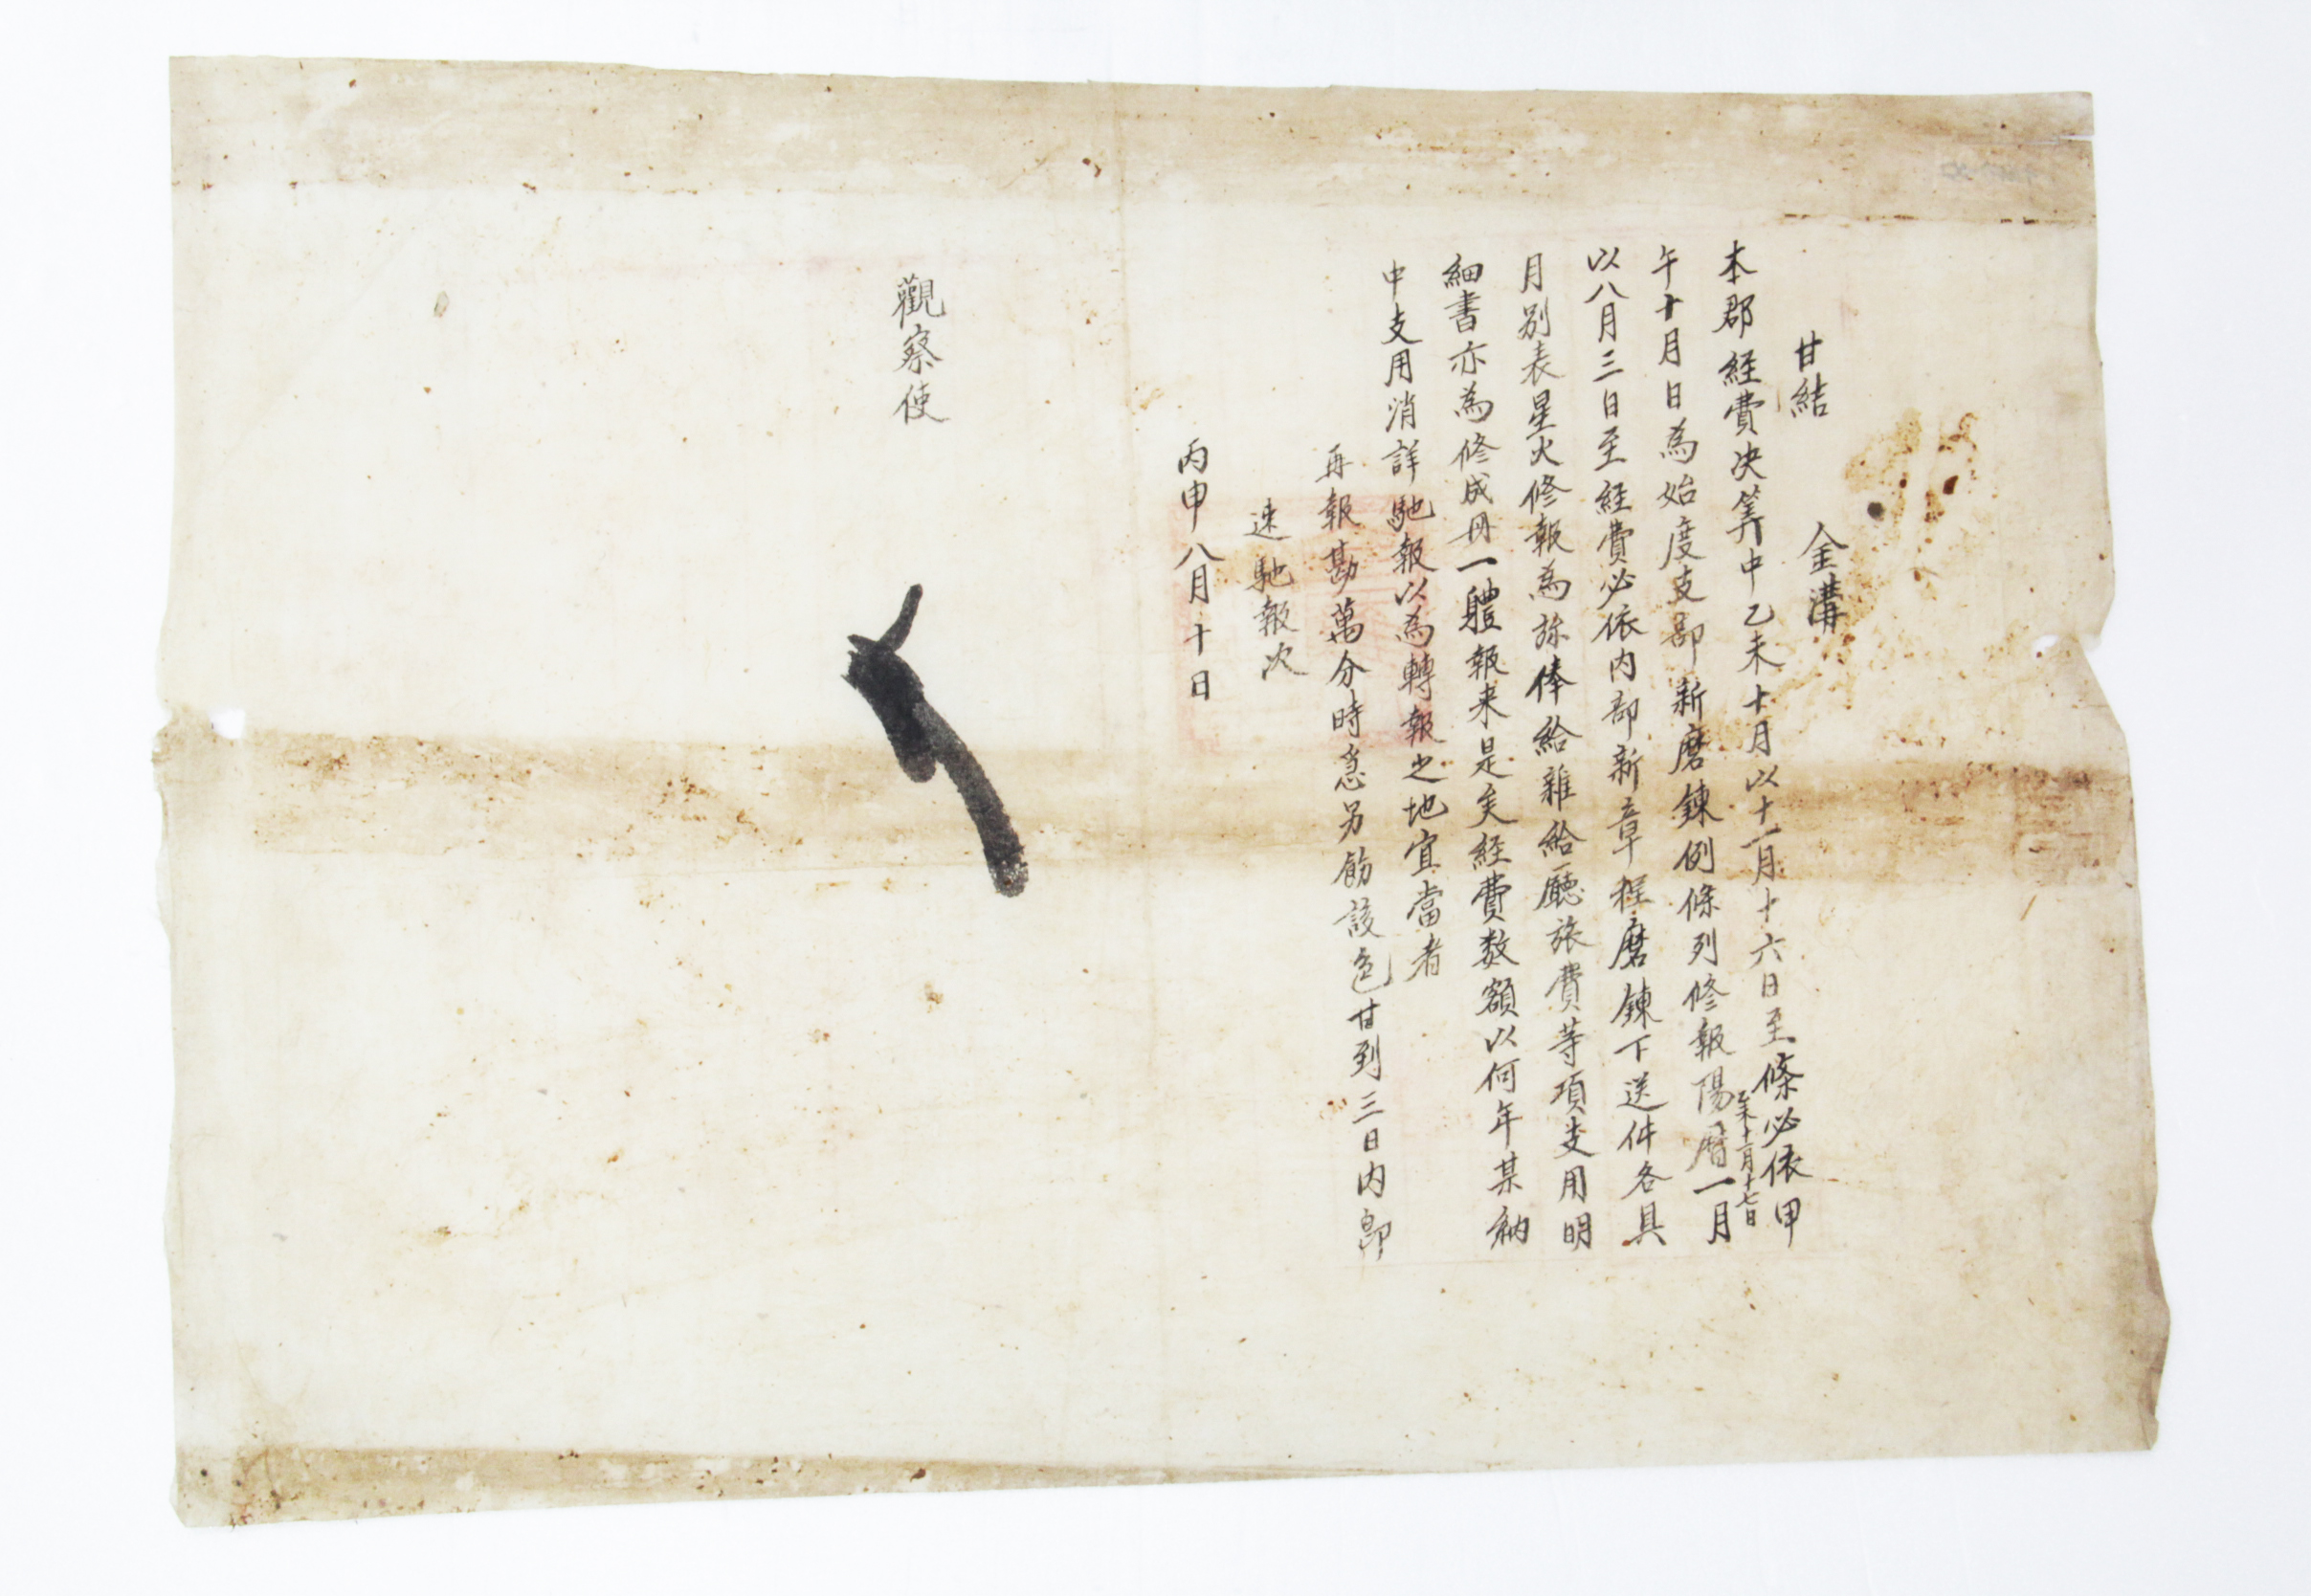 甘結 金溝
本郡經費決筭中乙未十月以十一月十六日至條必依甲
午十月日為始度支部新磨鍊例條列修報陽曆一月
至十一月十七日
以八月三日至經費必依内部新章程磨鍊下送件各具
月別表星火修報為㫆俸給雜給廳旅費等項支用明
細書亦為修成冊一軆報来是矣經費数額以何年某納
中支用消詳馳報以為轉報之地宜當者
再報勘萬分時急另飭該色甘到三日内即
速馳報次
丙申八月十日
觀察使